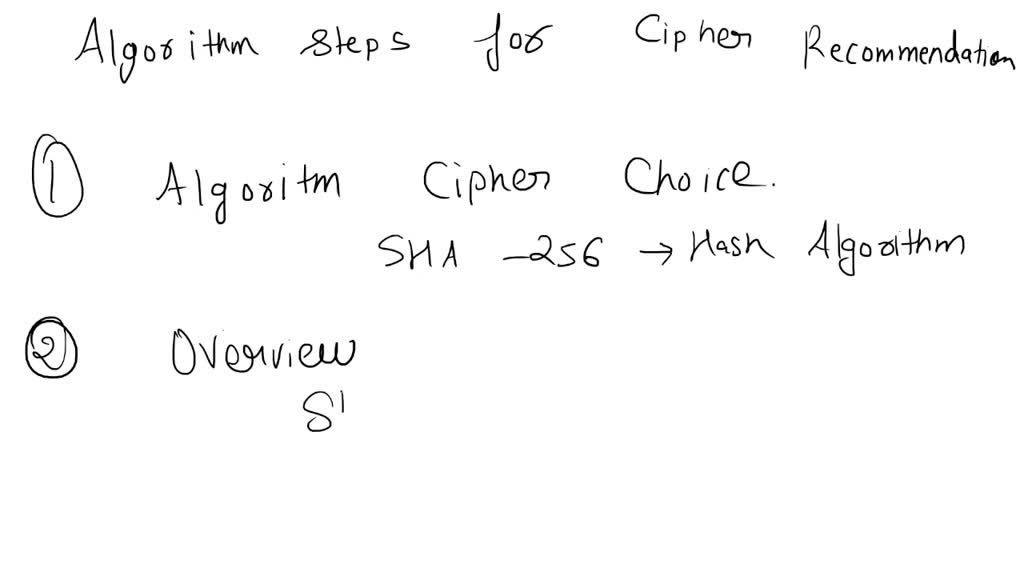 Algorithm steps for Cipher Recommendation
1 Algoritm Cipher Choice.
SHA -256 → Hash Algorithm
2 Overview
S